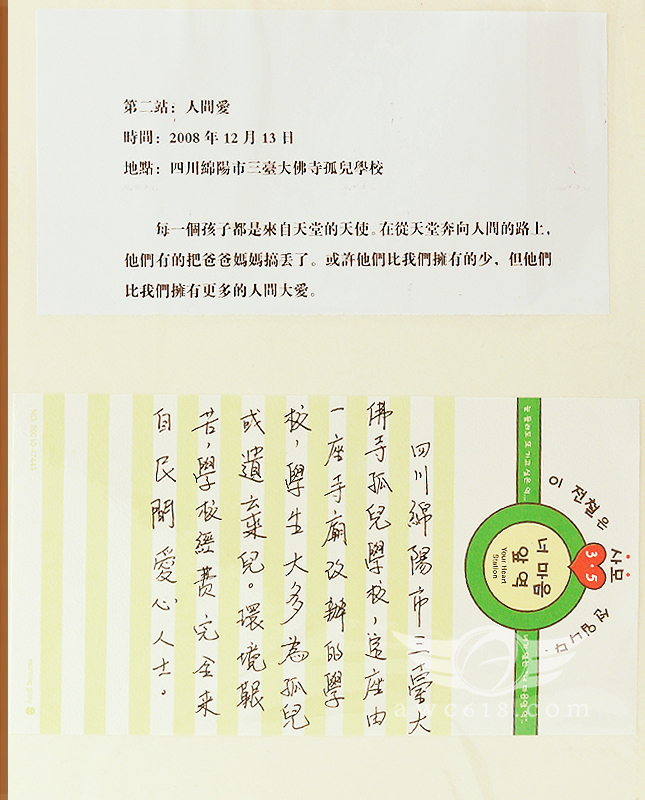 第二站：人間愛
時間：2008 年 12 月 13 日
地點：四川綿陽市三臺大佛寺孤兒學校
每一個孩子都是來自天堂的天使。在從天堂奔向人間的路上，
他們有的把爸爸媽媽搞丟了。或許他們比我們擁有的少，但他們
比我們擁有更多的人間大愛。
四川綿陽市三臺大
佛寺孤兒學校，這座由
一座寺廟改辦的學
校，學生大多為孤兒
或遺棄兒。環境艱
苦，學校經費完全來
自民間愛心人士。
이 전철은
사모
3.5
전입니다.
너 마음
앞 역
Your Heart
Station
awc618.com